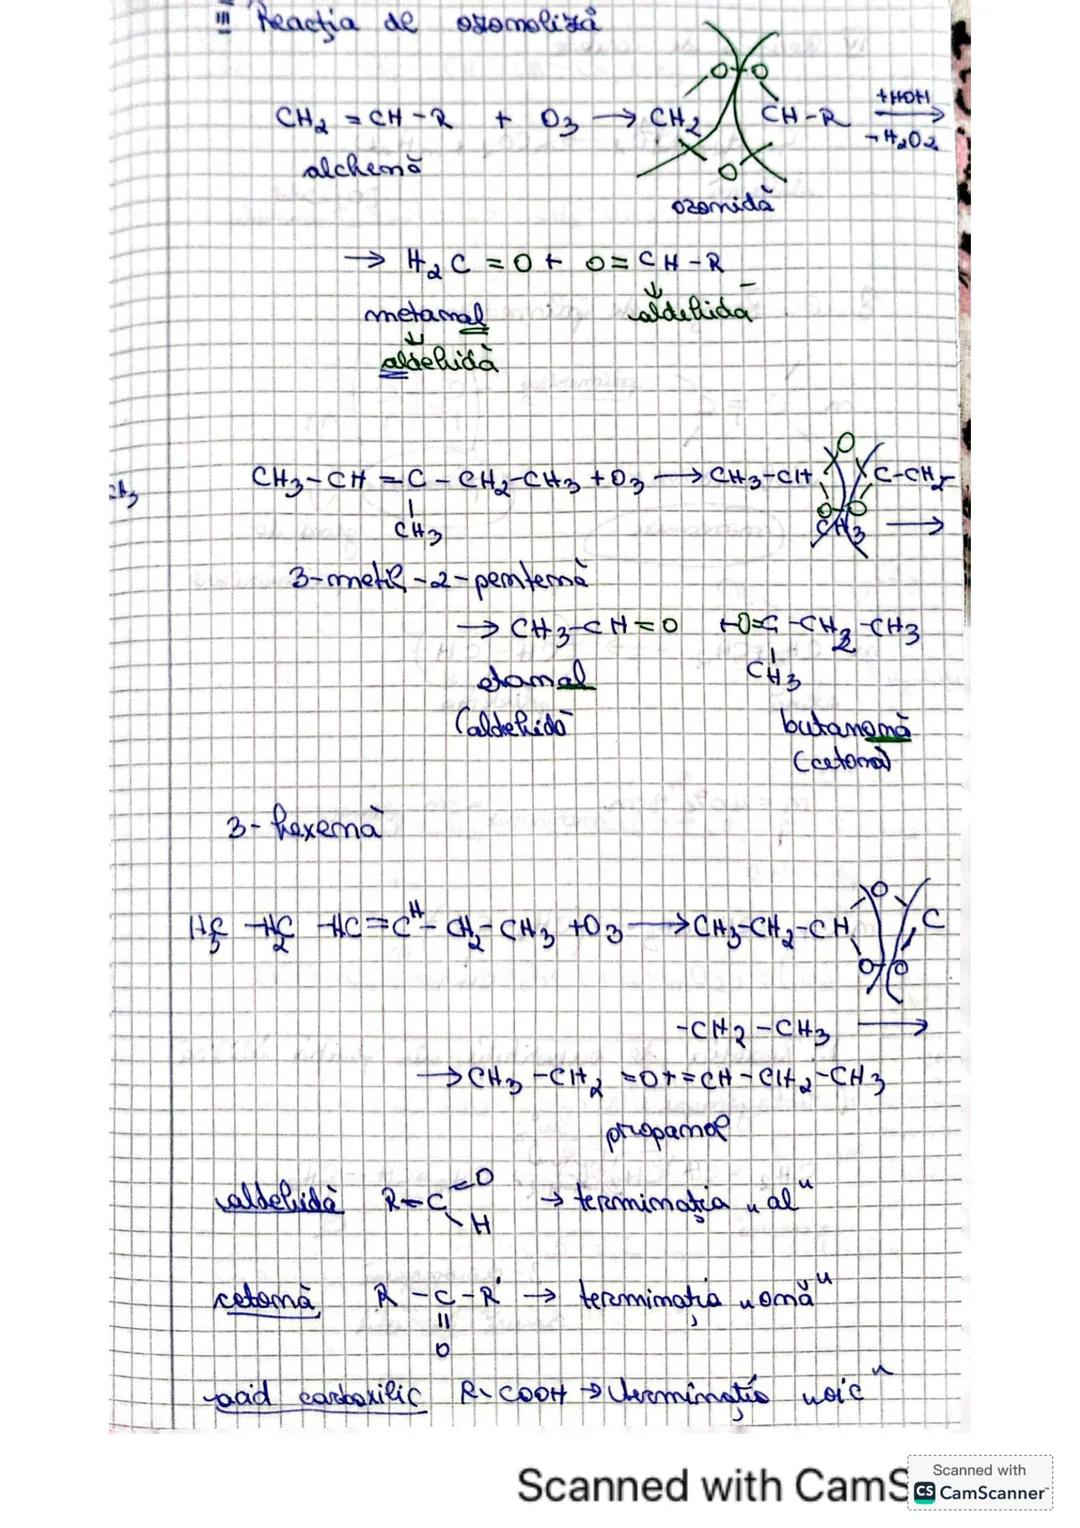 III Reacția de ozonoliză
CH2 = CH - R + O3 → CH2 O-O CH-R +HOH → -H2O2
alchenă
O
ozonidă
→ H2C = O + O = CH - R
metanal aldehidă
aldehidă
CH3 - CH = C - CH2 - CH3 + O3 → CH3 - CH O C - CH2
CH3 O-O CH3 →
3-metil-2-pentenă
→ CH3 - CH = O + O = C - CH2 - CH3
etanal CH3
(aldehidă butanonă
(cetonă)
3-hexenă
H3C - H2C - HC = CH - CH2 - CH3 + O3 → CH3 - CH2 - CH O C
O-O
- CH2 - CH3 →
→ CH3 - CH2 = O + = CH - CH2 - CH3
propanal
aldehidă R - C = O → terminația „al"
H
cetonă R - C - R' → terminația „onă"
O
acid carboxilic R - COOH → terminația „oic"
Scanned with CamS
Scanned with
CS CamScanner